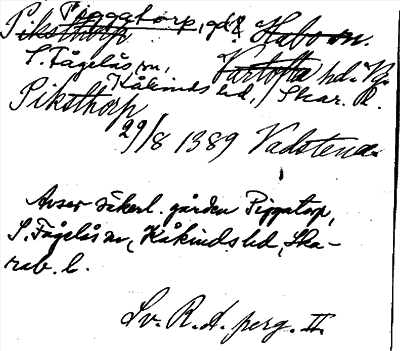 Piggatorp, gd &
Piksthorp Habo sn.
S. Fågelås sn, Vartofta hd. Vg.
Kåkinds hd, Skar. l.
Piksthorp
29/8 1389 Vadstena
Avser säkerl. gården Piggatorp,
S. Fågelås sn, Kåkinds hd, Ska-
rab. l.
Sv. R. A. perg. II.